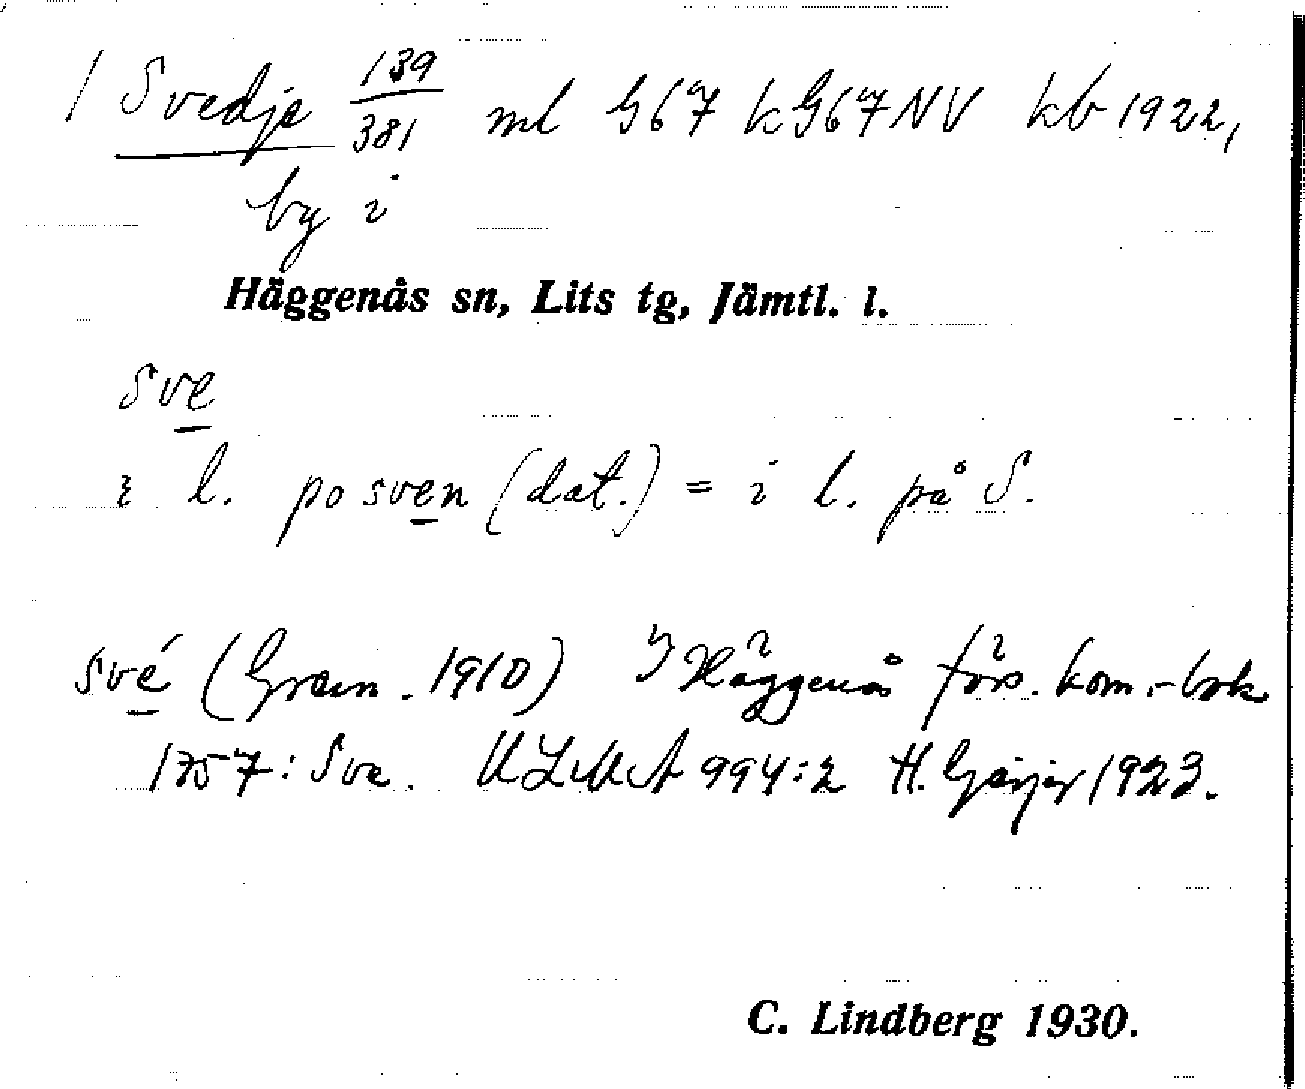 / Svedje 139/381 ml G67 kG67NV kb 1922,
by i
Häggenås sn, Lits tg, Jämtl. l.
sve
i l. po sven (dat.) = i l. på S.
své (Gram. 1910) I Häggenås förs. kom.-bok
1757: Sve. ULMA 994:2 H. Geijer 1923.
C. Lindberg 1930.